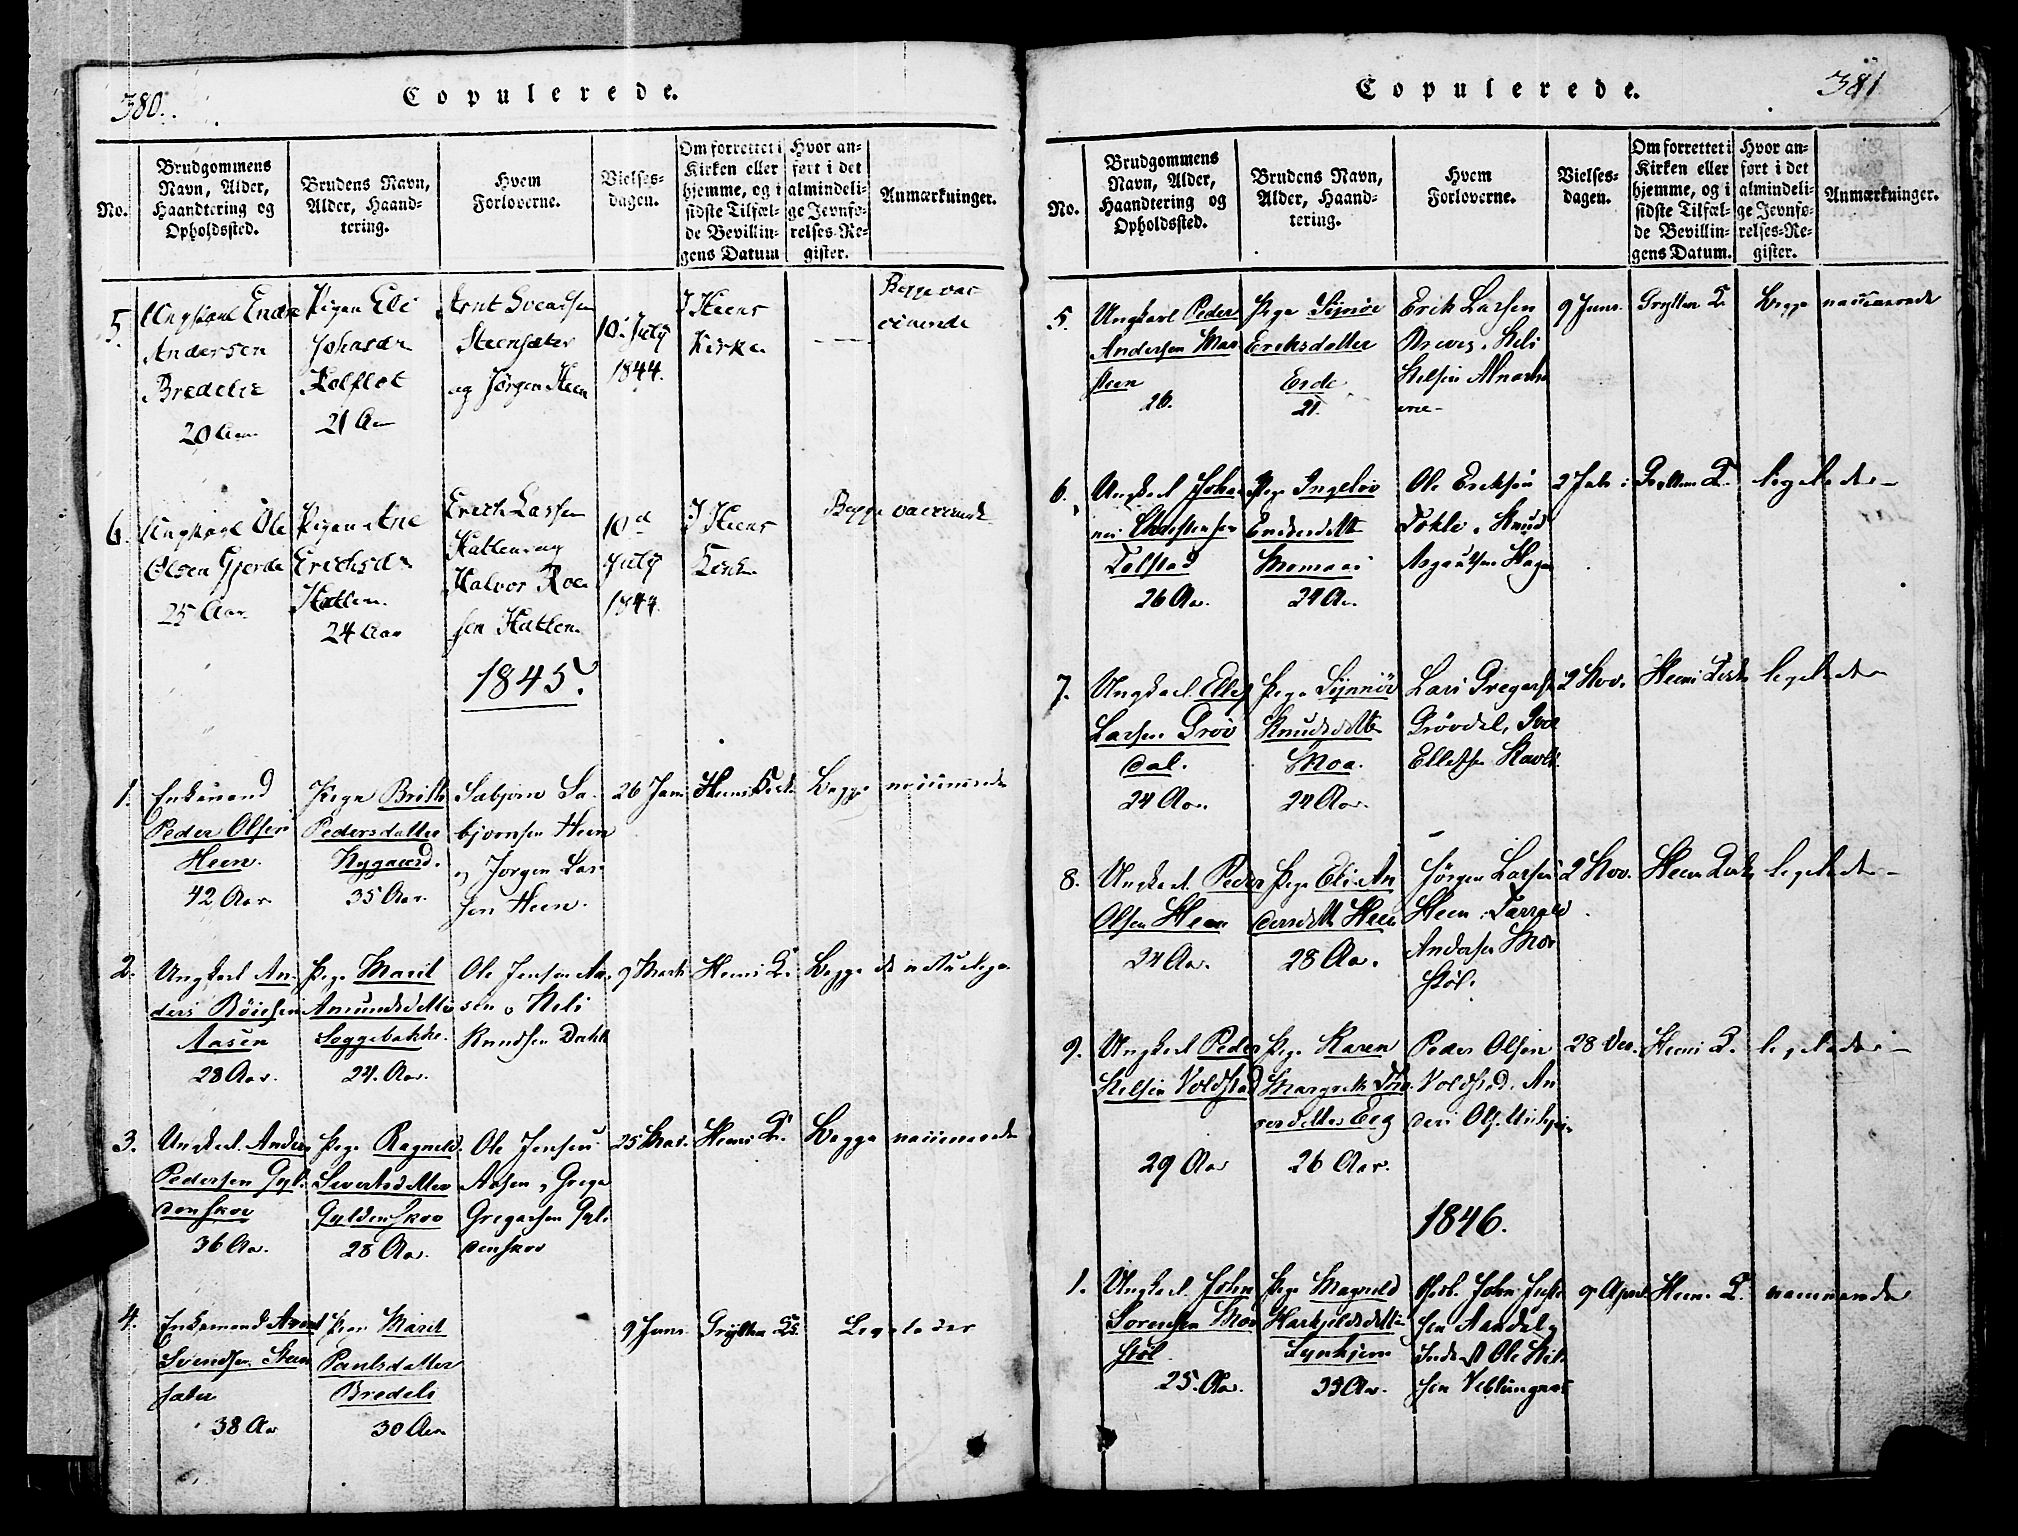 380.
Copulerede.
No.
Brudgommens Navn, Alder, Haandtering og Opholdssted.
Brudens Navn, Alder, Haandtering.
Hvem Forloverne.
Vielses-dagen.
Om forrettet i Kirken eller hjemme, og i sidste Tilfælde Bevillingens Datum
Hvor anført i det almindelige Jevnførelses-Register.
Anmærkninger.
5.
Ungkarl Endre
Andersen
Bredelie
20 Aar
Pigen Eli
Johnsdr
Kolflot
21 Aar
Arnt Svendsen
Steensæter
og Jørgen Heen
10. July
1844.
I Heens
Kirke
Begge vac
cinerede
6.
Ungkarl Ole
Olsen Gjerde
25 Aar.
Pigen Ane
Erichsdr
Hatlen.
24 Aar
Erich Larsen
Hatlen og
Halvor Roe
sen Hatlen.
10d
July
1844.
I Heens
Kirke
Begge vaccinerede
1845.
1.
Enkemand
Peder Olsen
Heen.
42 Aar
Pige Brith
Pedersdatter
Nygaard.
35 Aar.
Sæbjørn Sæ-
bjørnsen Heen
og Jørgen Lar-
sen Heen.
26 Jan.
Heens Kirke
Begge vaccinerede
2.
Ungkarl An-
ders Böiesen
Aasen
28 Aar.
Pige Marit
Amundsdatter
Soggebakke.
24. Aar.
Ole Jensen Aa-
sen, Nels
Knudsen
9 Marts
Heens K.
Begge
3.
Ungkarl Anders
Pedersen Gyl-
denskov
36 Aar.
Pige Ragneld
Sivertsdatter
Gyldenskov
28 Aar.
Ole Jensen
Aasen, Grega
Gregersen Gyl-
denskov
25 Mar.
Heens K.
Begge vaccinerede
4.
Enkemand Arent
Svendsen Steen
sæter
38 Aar
Pige Marit
Paulsdatter
Bredeli
30 Aar
9 Juni
Grytten K.
Ligeledes
381
Copulerede.
No.
Brudgommens Navn, Alder, Haandtering og Opholdssted.
Brudens Navn, Alder, Haandtering.
Hvem Forloverne.
Vielses-dagen.
Om forrettet i Kirken eller hjemme, og i sidste Tilfælde Bevillingens Datum.
Hvor anført i det almindelige Jevnførelses-Register.
Anmærkninger.
5.
Ungkarl Peder
Andersen Mar
steen
26.
Pige Synnöe
Eriksdatter
Erde
21.
Erik Larsen
Nels
Nelsen
9 Juni
Grytten K.
Begge vaccinerede
6.
Ungkarl Johan
nes Christensen
Tolstad
26 Aar.
Pige Ingelöv
Endresdatter
Momoen
24 Aar.
Ole Eriksen
Tokle, Knud
Asgautsen Hagen
2 Julii
Grytten K.
ligeledes
7.
Ungkarl Ellef
Larsen Gröv
dal.
24 Aar.
Pige Synnöv
Knudsdatter
Moa.
24 Aar.
Lars Gregersen
Grövdal, Iver
Ellefsen
2 Nov.
Heens Kirke
ligeledes
8.
Ungkarl Peder
Olsen Heen
24 Aar.
Pige Eli An
dersdatter Heen
28 Aar.
Jörgen Larsen
Heen, Tarrald
Andersen Mor
stöl.
2 Nov.
Heens Kirke
ligeledes
9.
Ungkarl Peder
Nelsen Voldstad
29 Aar
Pige Karen
Margrete
Eeg
26 Aar.
Peder Olsen
Voldstad, An
ders Ols.
28 Dec.
Heens K.
ligeledes
1846.
1.
Ungkarl John
Sörensen Mor
stöl
25. Aar.
Pige Magnild
Harkjeldsdatter
Lynhjem
Forl. John
sen Aandal,
Inderst Ole Nils
sen Veblungnæs
9 April
Heens K.
vaccinerede